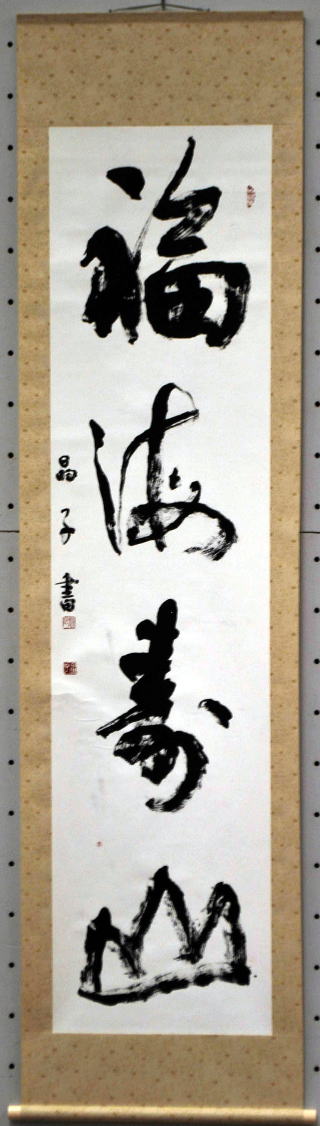 福海寿山
晶子書